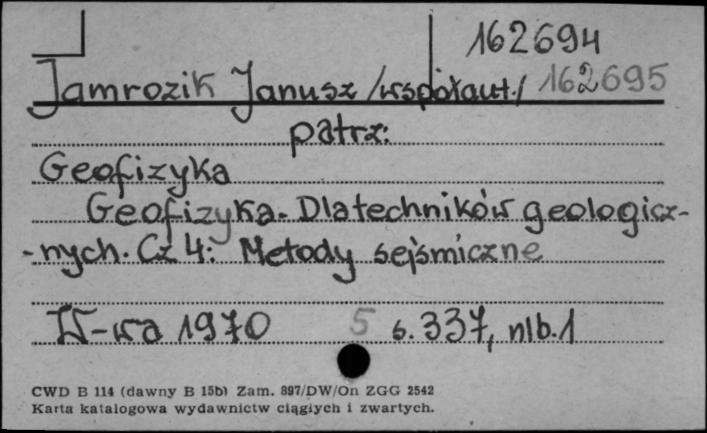 162694
Jamrozik Janusz /współaut./ 162695
patrz:
Geofizyka
Geofizyka. Dla techników geologicz-
-nych. Cz 4: Metody sejsmiczne
W-wa 1970 5 s. 337, nlb. 1
CWD B 114 (dawny B 15b) Zam. 897/DW/On ZGG 2542
Karta katalogowa wydawnictw ciągłych i zwartych.